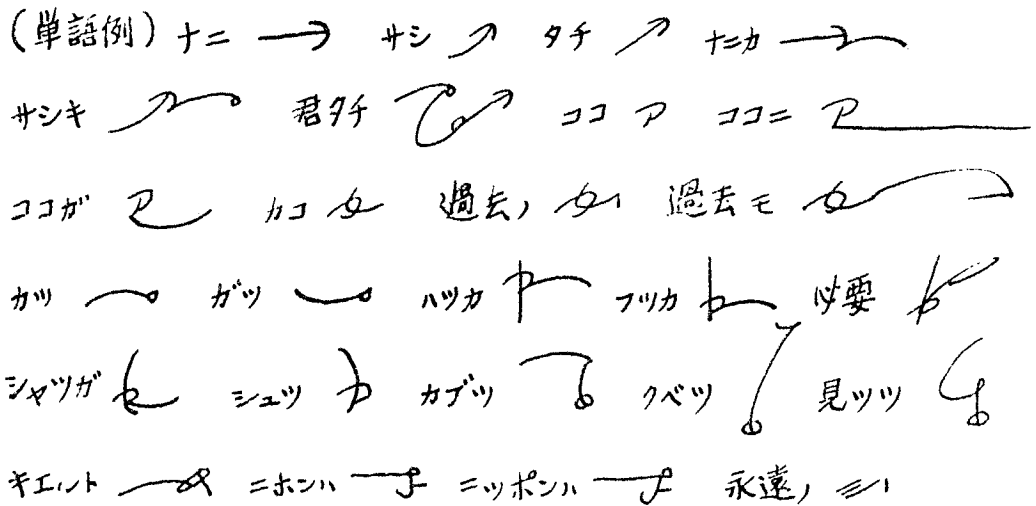 (単語例) ナニ サシ タチ ナニカ
サシキ 君タチ ココ ココニ
ココガ カコ 過去ノ 過去モ
カツ ガツ ハツカ フツカ 必要
シャツガ シュツ カブツ クベツ 見ツツ
キエント ニホンハ ニッポンハ 永遠ノ